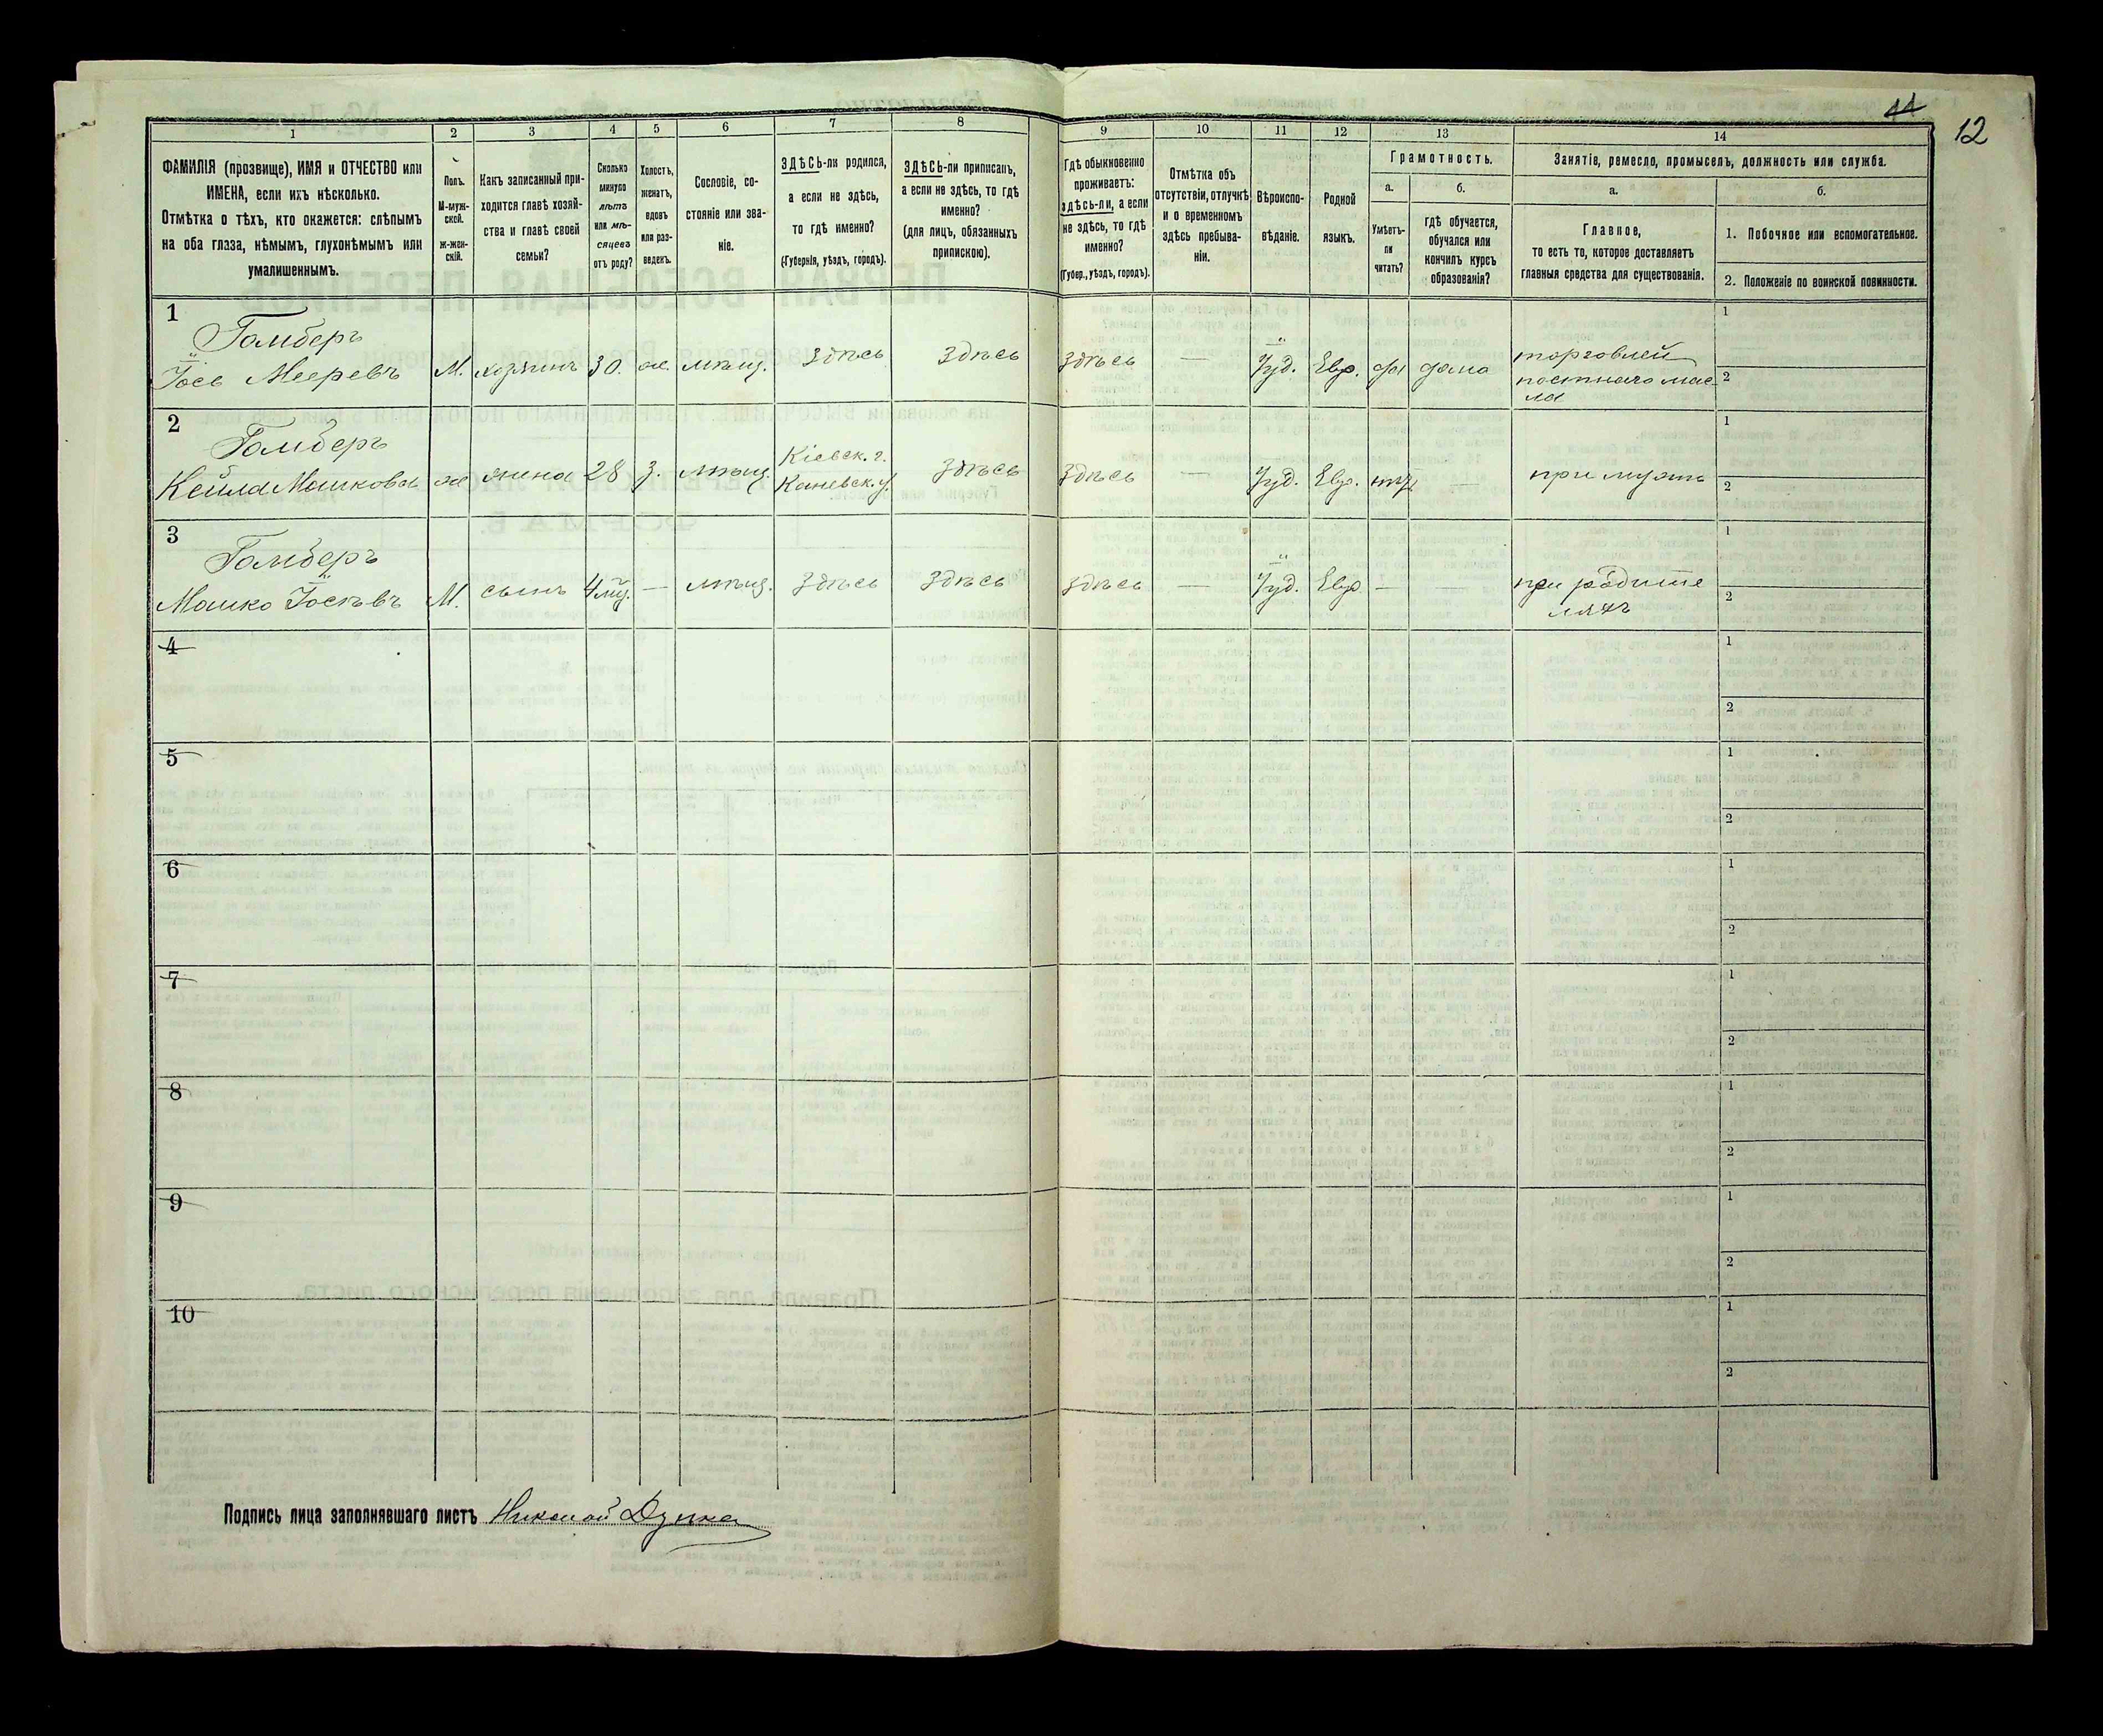 11
12
1
2
3
4
5
6
7
8
9
10
11
12
13
14
ФАМИЛІЯ (прозвище), ИМЯ и ОТЧЕСТВО или
ИМЕНА, если ихъ нѣсколько.
Отмѣтка о тѣхъ, кто окажется: слѣпымъ
на оба глаза, нѣмымъ, глухонѣмымъ или
умалишеннымъ.
Полъ.
М-муж-
ской.
ж-жен-
скій.
Какъ записанный при-
ходится главѣ хозяй-
ства и главѣ своей
семьи?
Сколько
минуло
лѣтъ
или мѣ-
сяцевъ
отъ роду?
Холостъ,
женатъ,
вдовъ
или раз-
веденъ.
Сословіе, со-
стояніе или зва-
ніе.
ЗДѢСЬ-ли родился,
а если не здѣсь,
то гдѣ именно?
(Губернія, уѣздъ, городъ).
ЗДѢСЬ-ли приписанъ,
а если не здѣсь, то гдѣ
именно?
(для лицъ, обязанныхъ
припискою).
Гдѣ обыкновенно
проживаетъ:
здѣсь-ли, а если
не здѣсь, то гдѣ
именно?
(Губер., уѣздъ, городъ).
Отмѣтка объ
отсутствіи, отлучкѣ
и о временномъ
здѣсь пребыва-
ніи.
Вѣроиспо-
вѣданіе.
Родной
языкъ.
Грамотность.
а.
Умѣетъ-
ли
читать?
б.
гдѣ обучается,
обучался или
кончилъ курсъ
образованія?
Занятіе, ремесло, промыселъ, должность или служба.
а.
Главное,
то есть то, которое доставляетъ
главныя средства для существованія.
б.
1. Побочное или вспомогательное.
2. Положеніе по воинской повинности.
1
Гомберъ
Іось Мееревъ
М.
хозяинъ
30.
ж.
мѣщ.
Здѣсь
Здѣсь
Здѣсь
—
Іуд.
Евр.
да
дома
торговлей
постнаго мас
ла
1
2
2
Гомберъ
Кейла Мошкова
ж
жена
28
з.
мѣщ.
Кіевск. г.
Каневск. у.
Здѣсь
Здѣсь
—
Іуд.
Евр.
нѣт
—
при мужѣ
1
2
3
Гомберъ
Мошко Іосьевъ
М.
сынъ
4 мц.
—
мѣщ.
Здѣсь
Здѣсь
Здѣсь
—
Іуд.
Евр
—
—
при родите
ляхъ
1
2
4
1
2
5
1
2
6
1
2
7
1
2
8
1
2
9
1
2
10
1
2
Подпись лица заполнявшаго листъ Николай